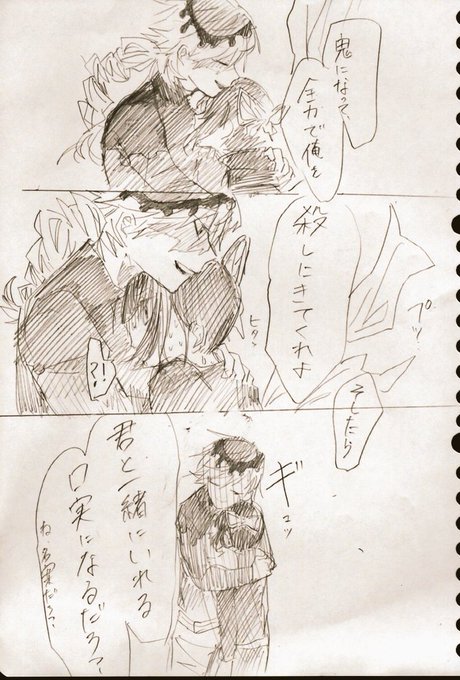 鬼になって、
全力で俺を
殺しにきてくれよ
プツ
ヒタ
?!
そしたら
ギュッ
君と一緒にいれる
口実になるだろ?